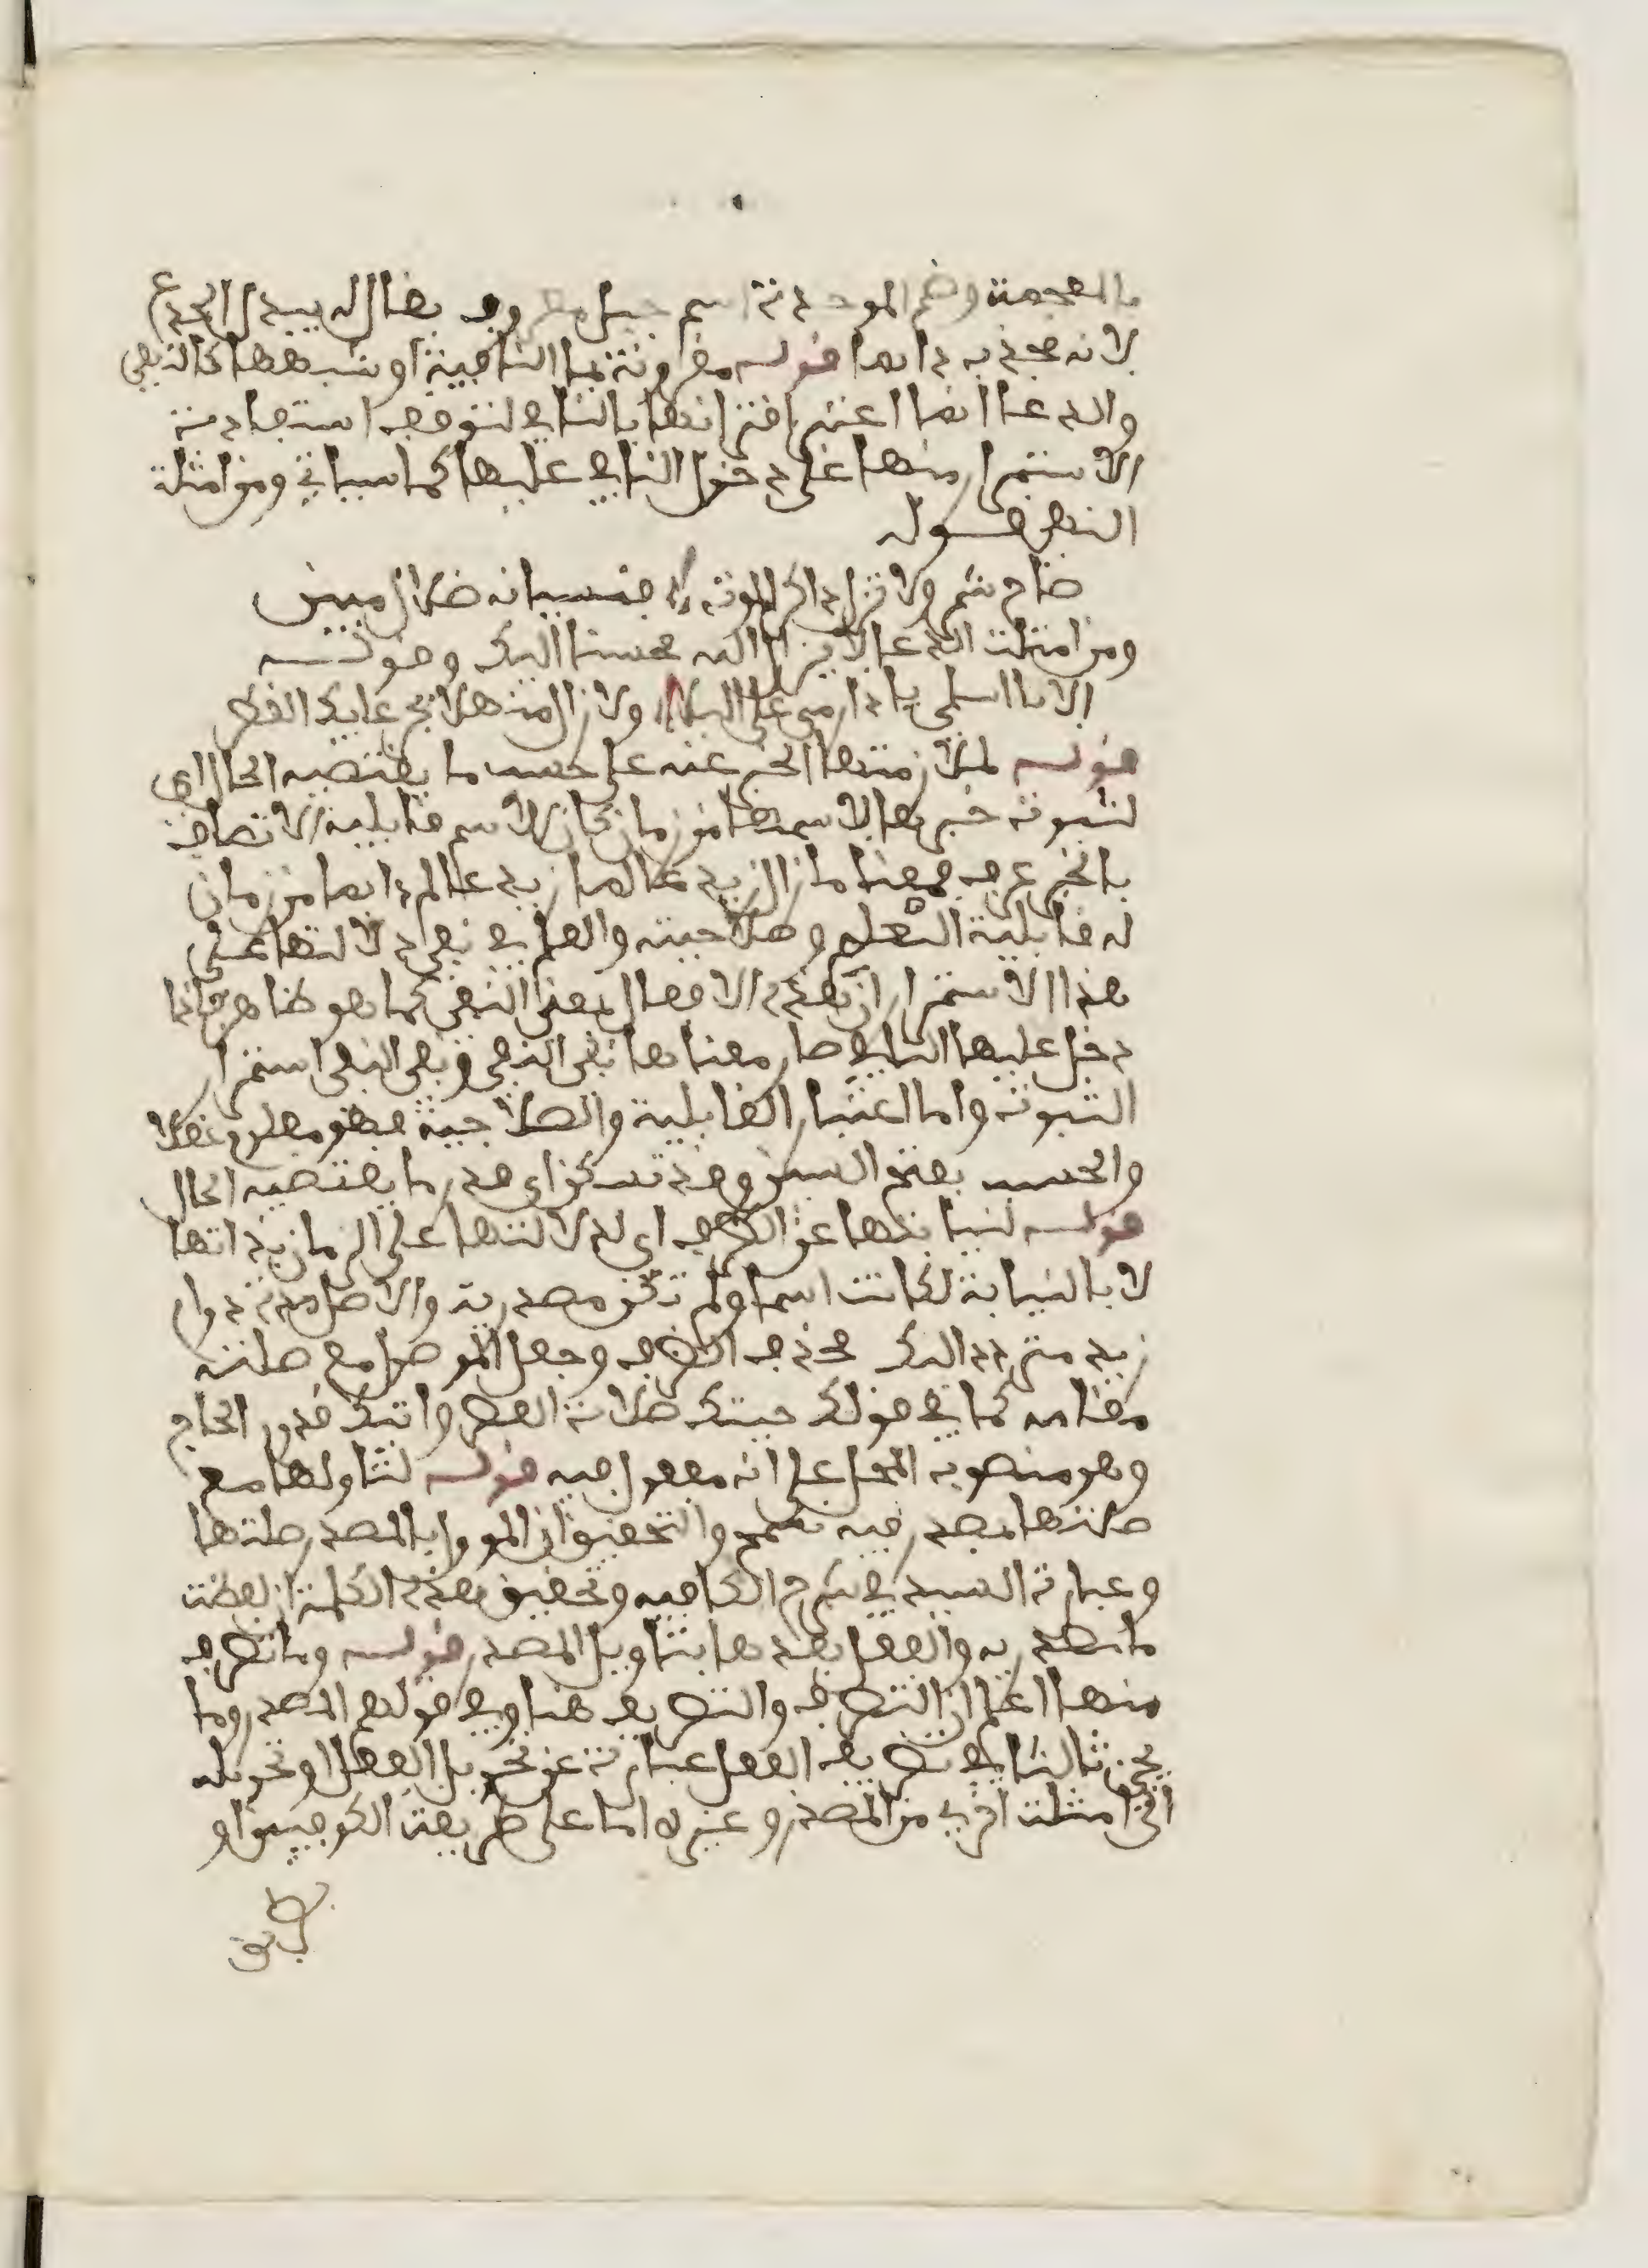 بالمعجمة وضم الموحدة اسم جبل معروف يقال له يبدل الجدع
لانه يجذبه دايما قوله مقرونة بما النافية او شبهها كالنهي
والدعا انما اعتبر اقترانها بالنافي لتوقف استفادة
الاستمرار منها على دخول النافي عليها كما سياتي ومن امثلة
النهي قوله
صاح شمر ولا تزل ذاكر الموت فنسيانه ضلال مبين
ومن امثلة الدعا لا يزال الله محسنا اليك وقوله
الا يا اسلمي يا دار مي على البلا ولا زال منهلا بجرعايك القطر
قوله لملازمتها الخبر عنه على حسب ما يقتضيه الحال اي
لثبوت خبرها لاسمها من زمان كان الاسم قابليه الاتصاف
بالخبر عرفا فمعنا ما زال زيد عالما زيد عالم دايما من زمان
له قابلية التعلم وصلاحيته والعا في نفي دلالتها على
هذا الاستمرار ان هذه الافعال بمعنى النفي كما هو ظاهر فاذا
دخل عليها النافي صار معناها نفي النفي ونفي النفي استمرار
الثبوت واما اعتبار القابلية والصلاحية فهو معلوم عقلا
والحسب بفتح السين وقد تسكن اي قدر ما يقتضيه الحال
قوله لنيابتها عن الظرف اي لدلالتها على الزمان بذاتها
لا بالنيابة لكانت اسما ولم تكن مصدرية والاصل مدة دوام
زيد مترددا اليك فحذف الظرف وجعل الموصول مع صلته
مقامه كما في قولك جيتك صلاة العصر واتيك قدوم الحاج
وهو منصوب المحل على انه مفعول فيه قوله لتاولها مع
صلتها بمصدر فيه تسمح والتحقيق ان الموول بالمصدر صلتها
وعبارة السيد في شرح الكافيه وتحقيق هذه الكلمة ان لفظة
ما مصدريه والفعل بعدها بتاويل المصدر قوله وما تصرف
منها اعلم ان التصرف والتصريف هنا وفي قولهم المصدر وما
يجري ثالثا في تصريف الفعل عبارة عن تحويل الفعل او تحويله
الى امثلة اخرى من المصدر وغيره اما على طريقة الكوفيين او